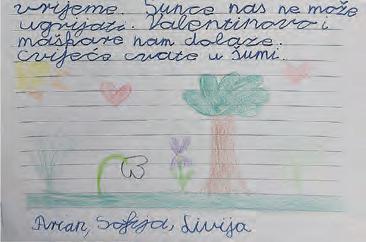 vrijeme. Sunce nas ne može
ugrijati. Valentinovo i
maškare nam dolaze.
Cvijeće cvate u šumi.
Arian, Sofija, Livija